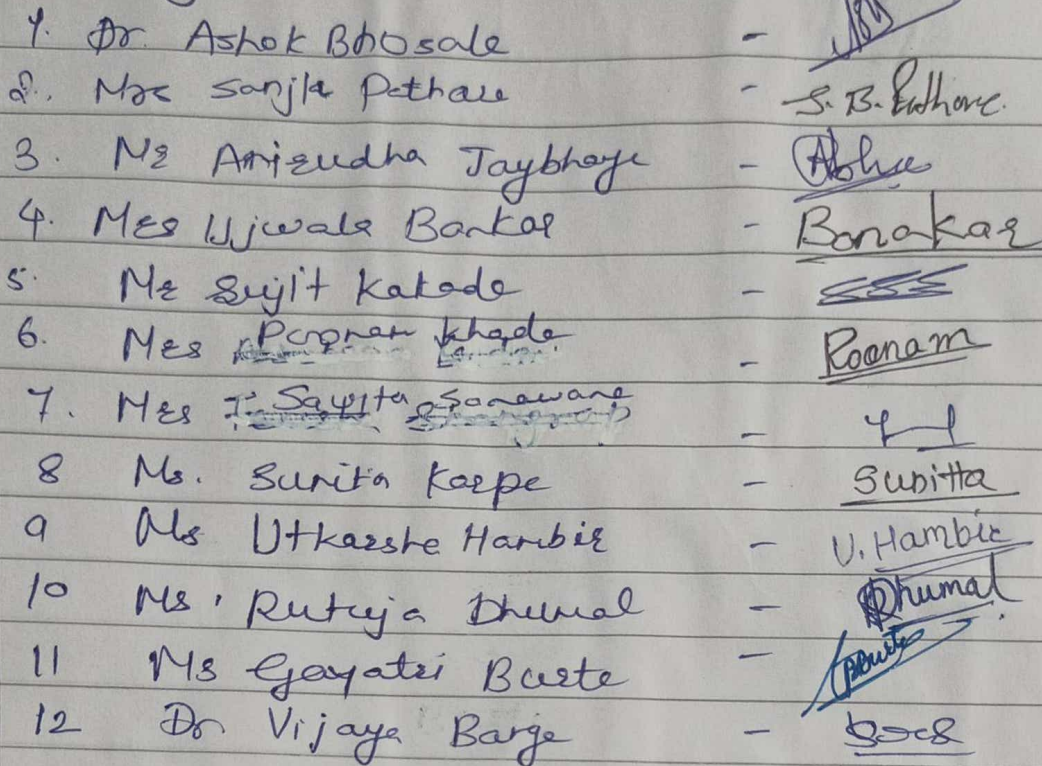 1. Dr. Ashok Bhosale -
2. Mrs Sanjla Pathare - S. B. Pathare.
3. Mr Anirudha Jaybhaye -
4. Mrs Ujwala Bankar - Banakar
5. Mr Sujit Kakade - SSS
6. Mrs Poonam Khade - Poonam
7. Mrs Savita Sonawane -
8 Ms. Sunita Karpe - Sunitta
9 Ms Utkarsha Hambir - U. Hambir
10 Ms. Rutuja Dhumal - RDhumal
11 Ms Gayatri Barte -
12 Dr Vijaya Barge -